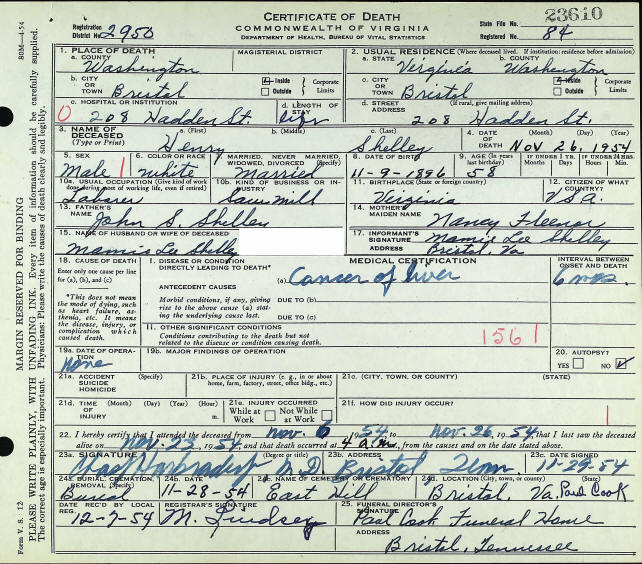 CERTIFICATE OF DEATH
COMMONWEALTH OF VIRGINIA
DEPARTMENT OF HEALTH, BUREAU OF VITAL STATISTICS
Registration District No. 2950
State File No. 23610
Registered No. 84
80M—4-54
MARGIN RESERVED FOR BINDING
PLEASE WRITE PLAINLY, WITH UNFADING INK. Every item of information should be carefully supplied.
The correct age is especially important. Physicians: Please write the causes of death clearly and legibly.
Form V. S. 12
1. PLACE OF DEATH
a. COUNTY Washington
MAGISTERIAL DISTRICT
b. CITY OR TOWN Bristol
Inside
Outside
Corporate Limits
c. HOSPITAL OR INSTITUTION 208 Hadden St.
d. LENGTH OF STAY life
2. USUAL RESIDENCE (Where deceased lived. If institution: residence before admission)
a. STATE Virginia
b. COUNTY Washington
c. CITY OR TOWN Bristol
Inside
Outside
Corporate Limits
d. STREET ADDRESS (If rural, give mailing address)
208 Hadden St.
0
3. NAME OF DECEASED (Type or Print)
a. (First) Henry
b. (Middle)
c. (Last) Shelley
4. DATE OF DEATH (Month) (Day) (Year)
Nov 26, 1954
5. SEX Male
1
6. COLOR OR RACE white
7. MARRIED, NEVER MARRIED, WIDOWED, DIVORCED (Specify)
Married
8. DATE OF BIRTH 11-9-1896
9. AGE (In years last birthday) 58
IF UNDER 1 YR. Months Days
IF UNDER 24 HRS. Hours Min.
10a. USUAL OCCUPATION (Give kind of work done during most of working life, even if retired)
Laborer
10b. KIND OF BUSINESS OR INDUSTRY
Sawmill
11. BIRTHPLACE (State or foreign country)
Virginia
12. CITIZEN OF WHAT COUNTRY?
USA.
13. FATHER'S NAME John S. Shelley
14. MOTHER'S MAIDEN NAME Nancy Fleenor
15. NAME OF HUSBAND OR WIFE OF DECEASED
Mamie Lee Shelley
17. INFORMANT'S SIGNATURE Mamie Lee Shelley
ADDRESS Bristol, Va
18. CAUSE OF DEATH
Enter only one cause per line for (a), (b), and (c)
*This does not mean the mode of dying, such as heart failure, asthenia, etc. It means the disease, injury, or complication which caused death.
MEDICAL CERTIFICATION
I. DISEASE OR CONDITION DIRECTLY LEADING TO DEATH*
(a) Cancer of liver
INTERVAL BETWEEN ONSET AND DEATH
6 mos.
ANTECEDENT CAUSES
Morbid conditions, if any, giving rise to the above cause (a) stating the underlying cause last.
DUE TO (b)
DUE TO (c)
II. OTHER SIGNIFICANT CONDITIONS
Conditions contributing to the death but not related to the disease or condition causing death.
1561
19a. DATE OF OPERATION
None
19b. MAJOR FINDINGS OF OPERATION
20. AUTOPSY?
YES NO
21a. ACCIDENT SUICIDE HOMICIDE (Specify)
21b. PLACE OF INJURY (e. g., in or about home, farm, factory, street, office bldg., etc.)
21c. (CITY, OR TOWN, OR COUNTY) (STATE)
21d. TIME OF INJURY (Month) (Day) (Year) (Hour) m.
21e. INJURY OCCURRED
While at Work Not While at Work
21f. HOW DID INJURY OCCUR?
1
22. I hereby certify that I attended the deceased from Nov. 6 1954 to Nov. 26, 1954, that I last saw the deceased
alive on Nov. 23, 1954, and that death occurred at 4 a.m., from the causes and on the date stated above.
23a. SIGNATURE (Degree or title) M.D.
23b. ADDRESS Bristol Tenn
11-29-54
24a. BURIAL, CREMATION, REMOVAL (Specify)
Burial
24b. DATE 11-28-54
24c. NAME OF CEMETERY OR CREMATORY
East Hill
24d. LOCATION (City, town, or county) (State)
Bristol, Va.
DATE REC'D BY LOCAL REG. 12-7-54
REGISTRAR'S SIGNATURE M. Lindsey
25. FUNERAL DIRECTOR'S SIGNATURE Paul Cook
Paul Cook Funeral Home
ADDRESS Bristol, Tennessee